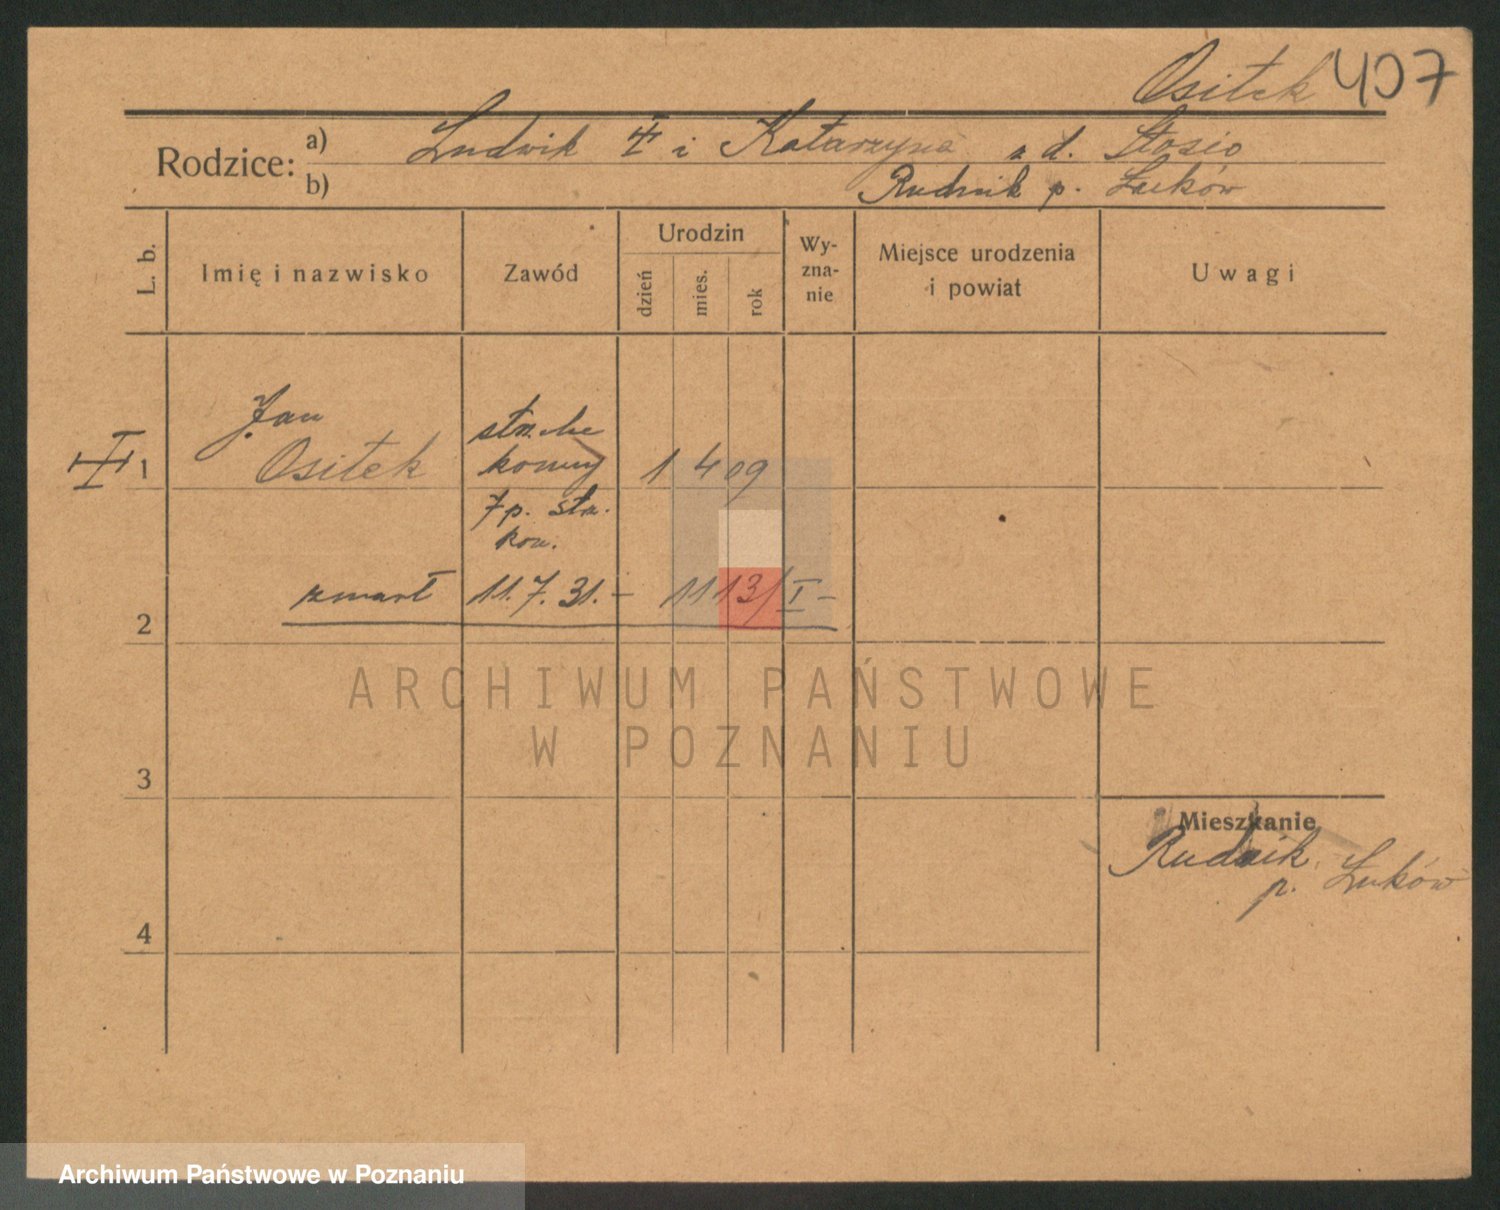 Ositek 407
Rodzice: a) Ludwik i Katarzyna z d. Stosio
b) Rudnik p. Łuków
L. b.
Imię i nazwisko
Zawód
Urodzin
dzień
mies.
rok
Wy-
zna-
nie
Miejsce urodzenia
i powiat
Uwagi
Jan
1 Ositek
konny 1 4 09
7 p. strz.
kon.
zmarł 11.7.31. – 1113/I –
2
3
4
Mieszkanie
Rudnik
p. Łuków
ARCHIWUM PAŃSTWOWE
W POZNANIU
Archiwum Państwowe w Poznaniu